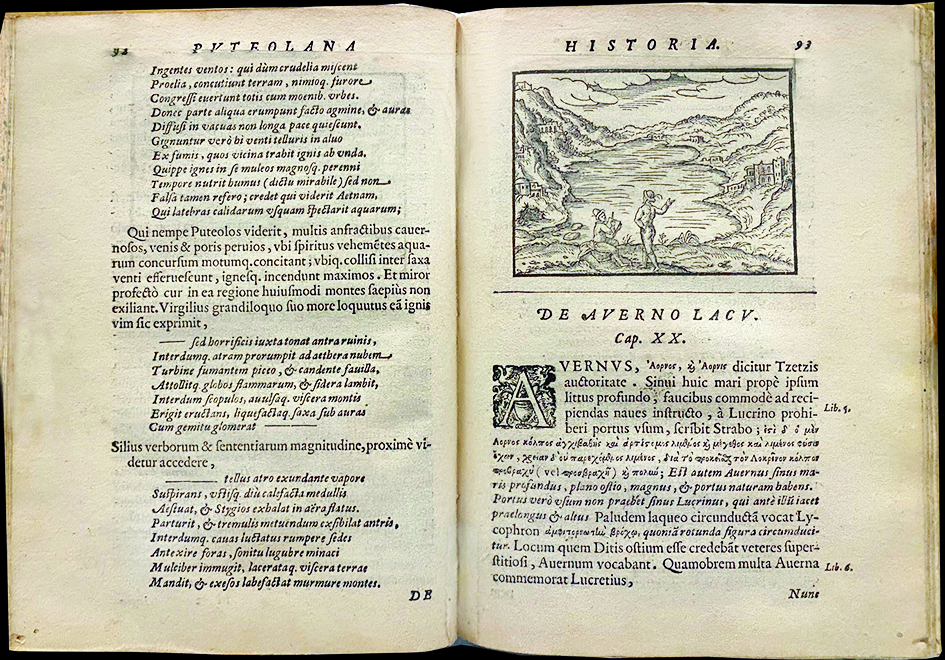 92 PVTEOLANA
Ingentes ventos: qui dùm crudelia miscent
Proelia, concutiunt terram, nimioq. furore
Congressi euertunt totis cum moenib. vrbes.
Donec parte aliqua erumpunt facto agmine, & auras
Diffusi in vacuas non longa pace quiescunt.
Gignuntur verò bi venti telluris in aluo
Ex fumis, quos vicina trahit ignis ab vnda.
Quippe ignes in se muleos magnosq. perenni
Tempore nutrit humus (dictu mirabile) sed non
Falsa tamen refero; credet qui viderit Aetnam,
Qui latebras calidarum vsquam spectarit aquarum;
Qui nempe Puteolos viderit, multis anfractibus cauer-
nosos, venis & poris peruios, vbi spiritus vehemētes aqua-
rum concursum motumq. concitant; vbiq. collisi inter saxa
venti efferuescunt, ignesq. incendunt maximos. Et miror
profectò cur in ea regione huiusmodi montes saepiùs non
exiliant. Virgilius grandiloquo suo more loquutus eā ignis
vim sic exprimit,
—— sed horrificis iuxta tonat antra ruinis,
Interdumq. atram prorumpit ad aethera nubem
Turbine fumantem piceo, & candente fauilla,
Attollitq. globos flammarum, & sidera lambit,
Interdum scopulos, auulsaq. viscera montis
Erigit eructans, liquefactaq. saxa sub auras
Cum gemitu glomerat ——
Silius verborum & sententiarum magnitudine, proximè vi-
detur accedere,
——. tellus atro exundante vapore
Suspirans, vstisq. diu calefacta medullis
Aestuat, & Stygios exhalat in aëra flatus.
Parturit, & tremulis metuendum exsibilat antris,
Interdumq. cauas luctatus rumpere sedes
Antexire foras, sonitu lugubre minaci
Mulciber immugit, lacerataq. viscera terrae
Mandit, & exesos labefactat murmure montes.
DE
HISTORIA. 93
DE AVERNO LACV.
Cap. XX.
AVERNVS, Ἄορνος, ϗ Ἄορνις dicitur Tzetzis
auctoritate. Sinui huic mari propè ipsum
littus profundo, faucibus commodè ad reci-
piendas naues instructo, à Lucrino prohi-
beri portus vsum, scribit Strabo; ἐςὶ δ' ὁ μὲν Lib. 5.
Ἄορνος κόλπος ἀγχιβαθὴς καὶ ἀρτίστομος λιμένος ϗ μέγεθος καὶ λιμένος φύσιν
ἔχων, χρείαν δ' οὐ παρεχόμενος λιμένος, διὰ τὸ προκεῖσθαι τὸν Λοκρῖνον κόλπον
προσβραχῆ (vel προσβραχῆ) ϗ πολιῶ; Est autem Auernus sinus ma-
ris profundus, plano ostio, magnus, & portus naturam habens.
Portus verò vsum non praebet sinus Lucrinus, qui ante illū iacet
praelongus & altus Paludem laqueo circunductā vocat Ly-
cophron ἀμφιτορνωτὼ βρόχῳ, quoniā rotunda figura circunduci-
tur. Locum quem Ditis ostium esse credebāt veteres super-
stitiosi, Auernum vocabant. Quamobrem multa Auerna
commemorat Lucretius, Lib. 6.
Nunc